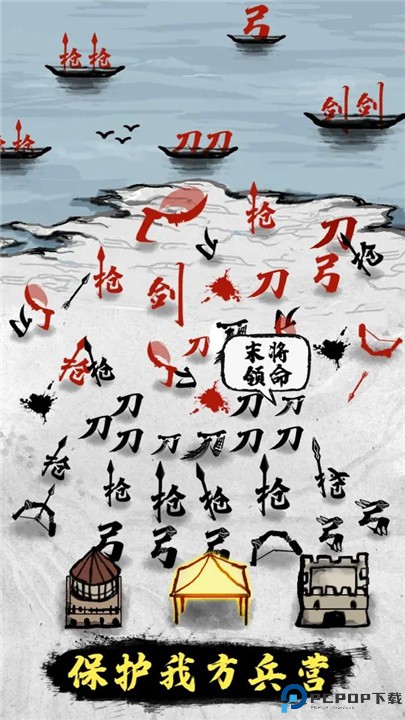 弓
枪枪
剑剑
枪枪
刀刀
枪
刀
枪
弓
枪
剑
刀
刀
枪
枪
末将
领命
刀
刀刀
刀刀
刀刀
刀刀
枪
枪
枪
枪
枪
枪
枪
弓
弓
弓
弓
弓
保护我方兵营
PCPOP下载